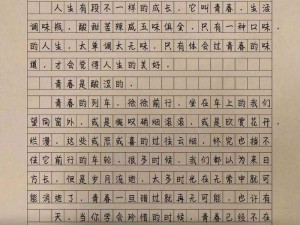 人生有段不一样的成长，它叫青春，生活
调味瓶，酸甜苦辣咸五味俱全，只有一种口味，
的人生，太单调太无味，只有体会过青春的味
道，才会觉得人生的美好。
青春是酸涩的。
青春的列车，徐徐前行，坐在车上的我们
望向窗外，或是慨叹硝烟滚滚，或是欣赏花开
烂漫，这些或悲或喜的过往云烟，终究也挡不
住它前行的车轮，很多时候，我们都认为来日
方长，但是岁月流逝，太多时光在无常中就可
能消逝了，青春一旦错过就再无可能，也许有
天，当你学会珍惜的时候，青春已经不在